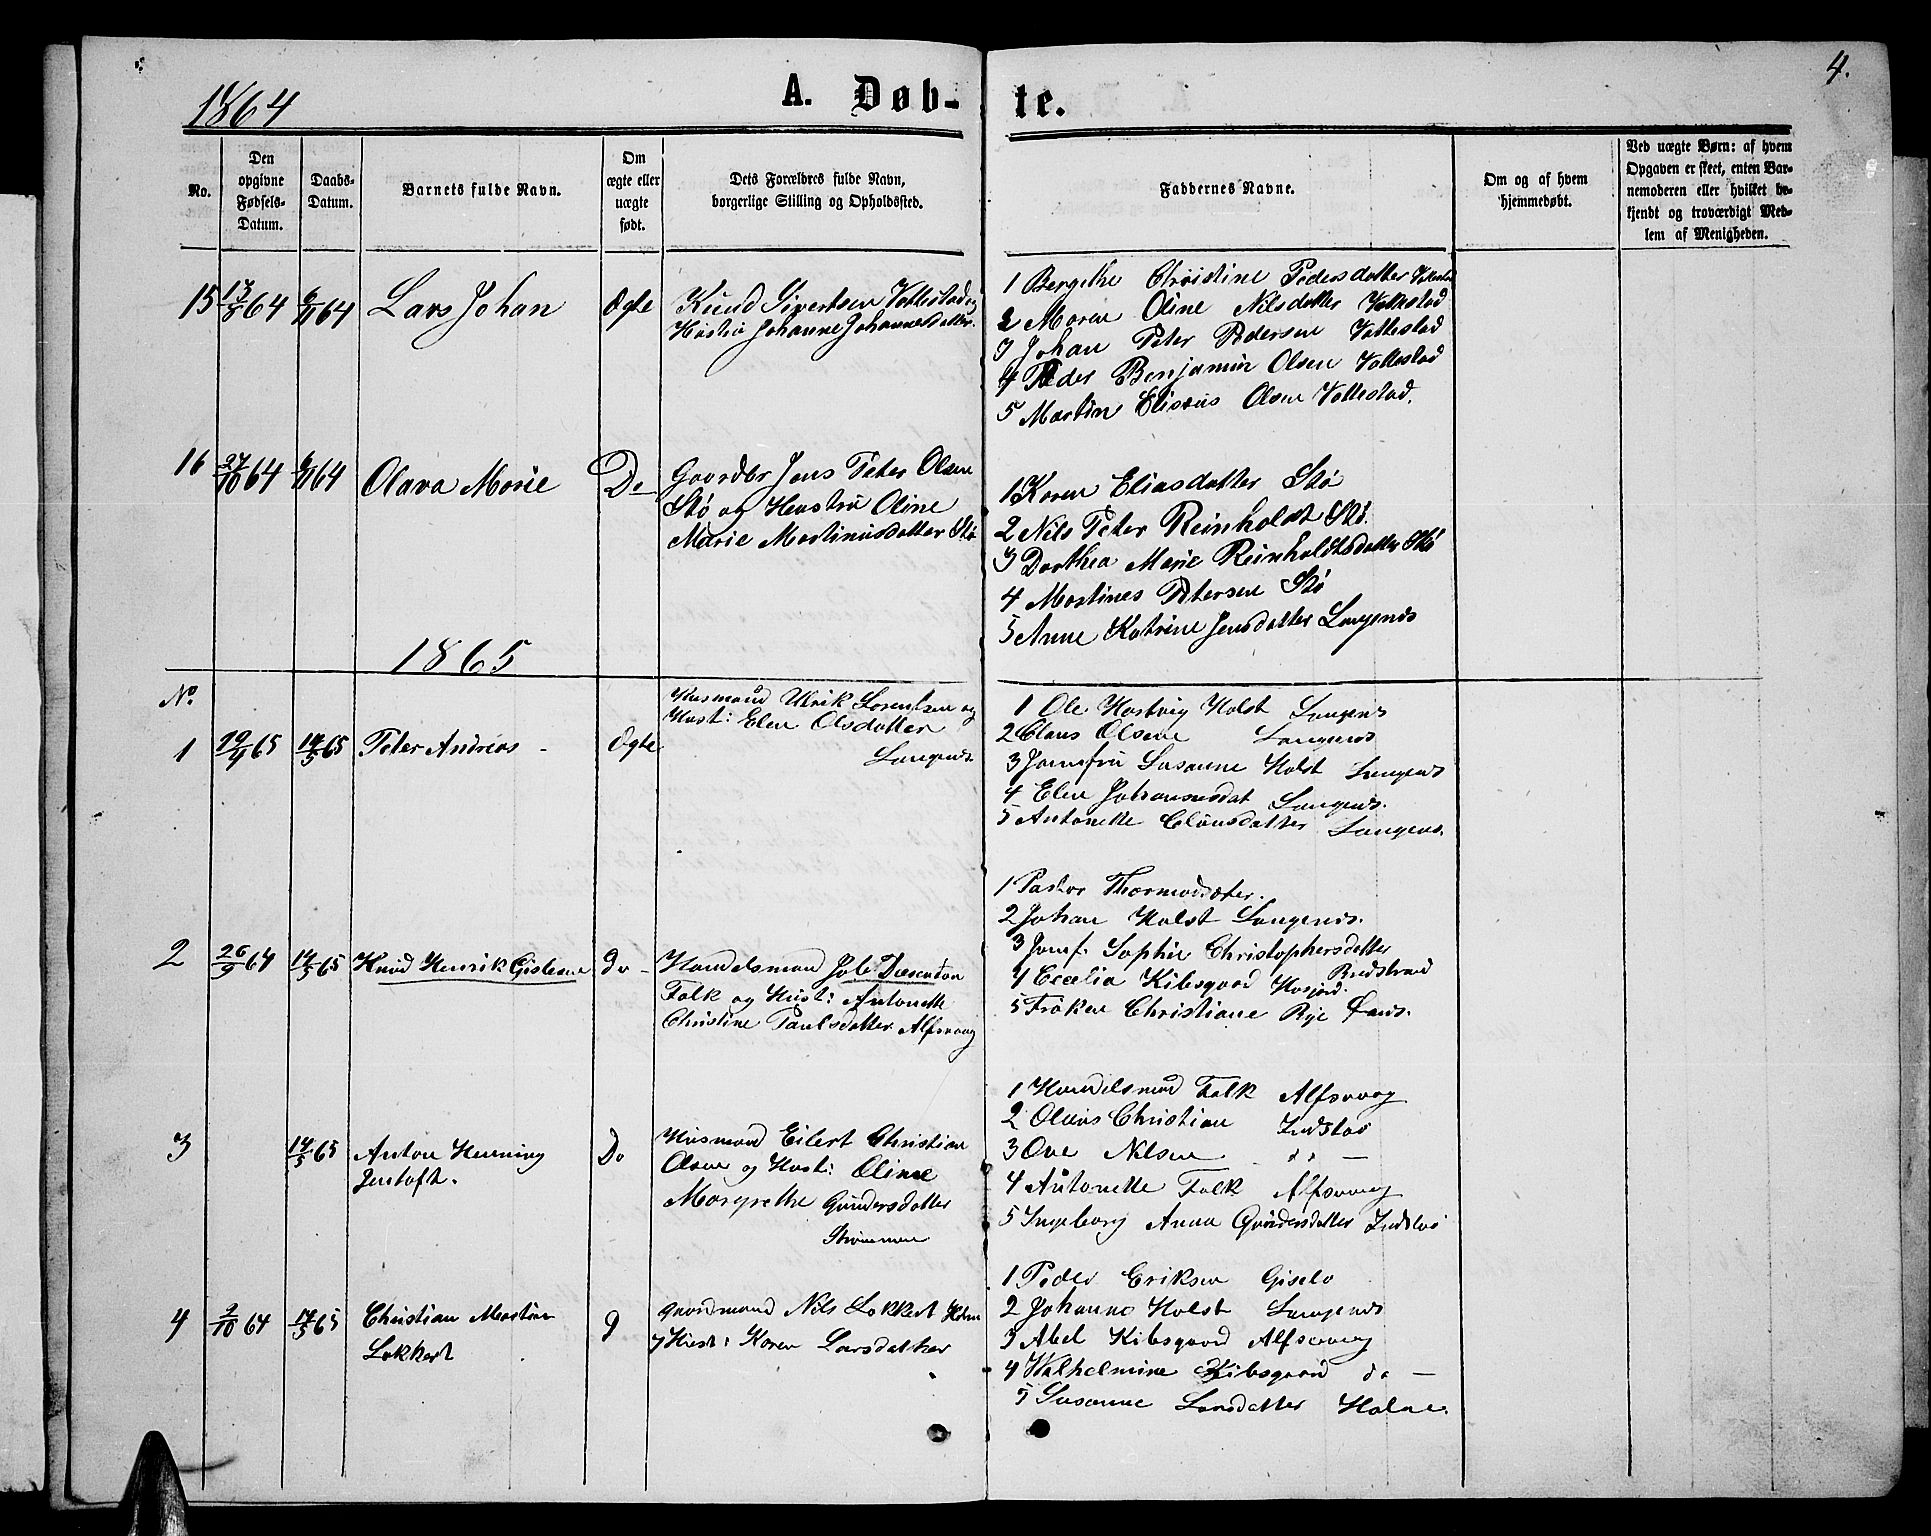 4.
1864
A. Døb- te.
No.
Den opgivne Fødsels-Datum.
Daabs-Datum.
Barnets fulde Navn.
Om ægte eller uægte født.
Dets Forældres fulde Navn, borgerlige Stilling og Opholdssted.
Faddernes Navne.
Om og af hvem hjemmedøbt.
Ved uægte Børn: af hvem Opgaven er skeet, enten Barnemoderen eller hvilket bekjendt og troværdigt Medlem af Menigheden.
15 13/8 64 6/11 64 Lars Johan Ægte
Knud Sivertsen Vollestad og
Hustrø Johanne Johannesdatter.
1 Bergithe Christine Pedersdatter
2 Maren Oline Nilsdatter Vollestad
3 Johan Peter Pedersen Vollestad
4 Peder Benjamin Olsen Vollestad
5 Martin Elisæus Olsen Vollestad.
16 27/10 64 6/11 64 Olava Marie Do
Gaardbr Jens Peter Olsen
Stø og Hustru Oline
Marie Martinusdatter Stø
1 Karen Eliasdatter Stø
2 Nils Peter Reinholdt Stø.
3 Dorthea Marie Reinholdtsdatter Stø
4 Martines Petersen Stø
5 Anne Katrine Jensdatter Langenes
1865
No
1 19/4 65 14/5 65 Peter Andreas Ægte
Husmand Ulrik Lorentsen og
Hust: Elen Olsdatter
Langenes
1 Ole Hartvig Holst Langenes
2 Claus Olsen Langenes
3 Jomfru Susanne Holst Langenes
4 Elen Johannesdat Langenes.
5 Antonette Clausdatter Langenes.
2 26/9 64 14/5 65 Knud Henrik Gisleson do
Handelsmand
Falk og Hust: Antonette
Christine Paulsdatter Alfsvaag
1 Pastor Thormodsæter.
2 Johan Holst Langenes.
3 Jomf. Sophie Christophersdatter
4 Cecelia Kibsgaard
5 Frøken Christiane Rye
3 14/5 65 Anton Henning
Jentoft. Do
Husmand Eilert Christian
Olsen og Hust: Oline
Margrethe Gundersdatter
Strømmen
1 Handelsmand Falk Alfsvaag
2 Olaus Christian
3 Ove Nilsen
4 Antonette Falk Alfsvaag
5 Ingeborg Anna Gundersdatter
4 2/10 64 14/5 65 Christian Martin
Lokkert
Gaardmand Nils Lokkert Holm
Hust: Karen Larsdatter
1 Peder Eriksen Gislø
2 Johanna Holst Langenes
3 Abel Kibsgaard Alfsvaag
4 Walhelmine Kibsgaard do
5 Susanne Larsdatter Holm.